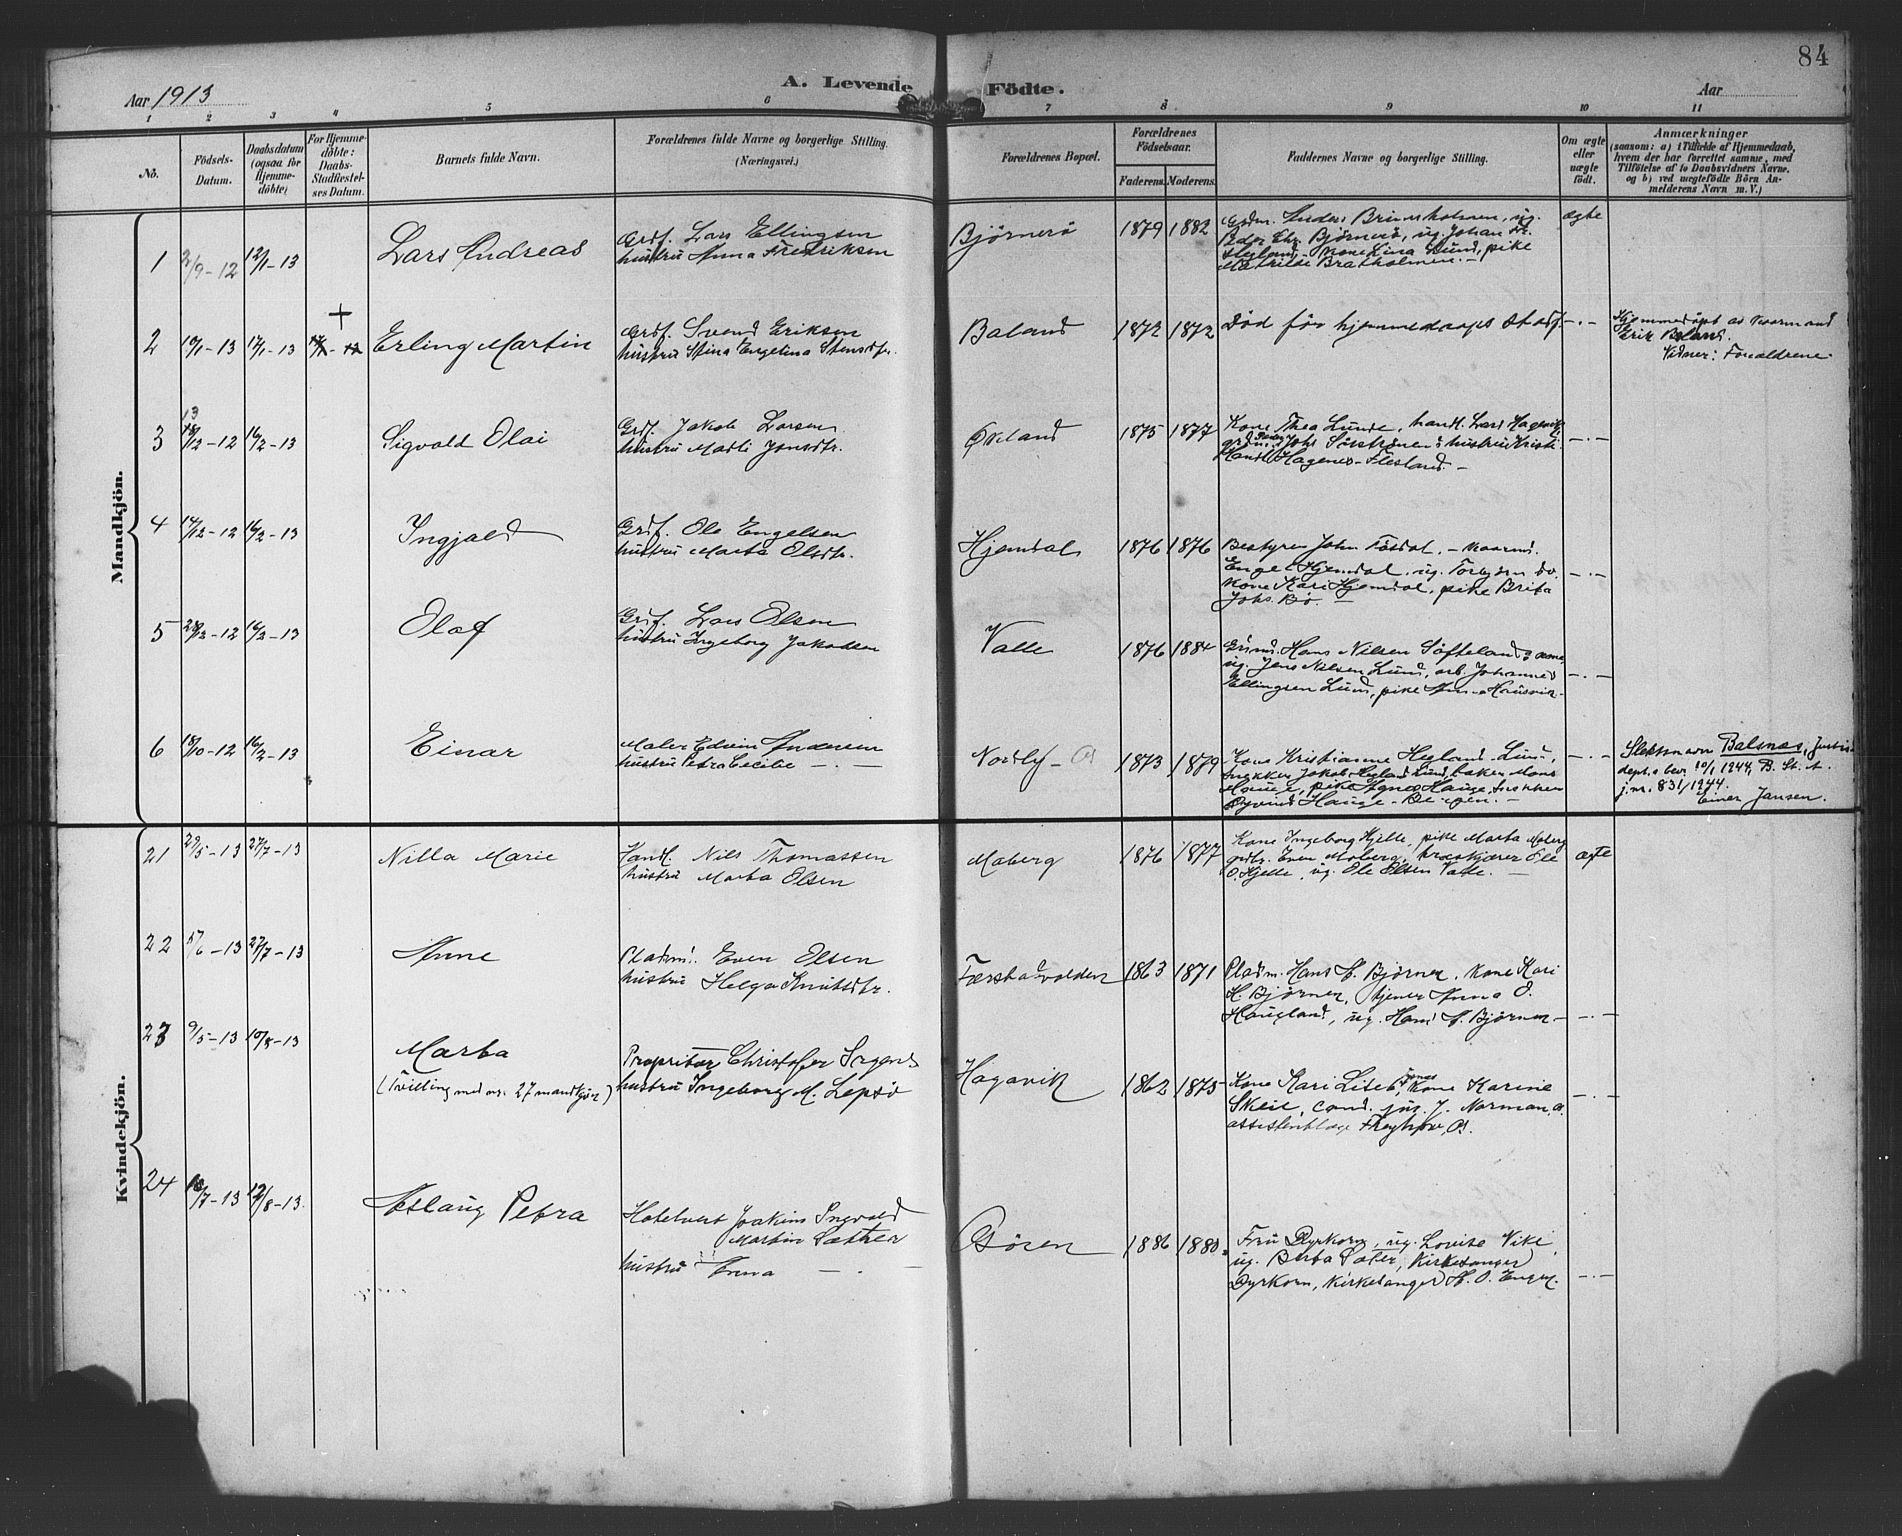 84
Aar 1913
A. Levende
Födte.
Aar
1 2 3 4 5 6 7 8 9 10 11
No.
Födsels-
Datum.
Daabsdatum
(ogsaa for
Hjemme-
döbte)
For Hjemme-
döbte:
Daabs-
Stadfæstel-
ses Datum.
Barnets fulde Navn.
Forældrenes fulde Navne og borgerlige Stilling.
(Næringsvei.)
Forældrenes Bopæl.
Forældrenes
Födselsaar.
Faderens. Moderens.
Faddernes Navne og borgerlige Stilling.
Om ægte
eller
uægte
födt.
Anmærkninger
(saasom: a) i Tilfælde af Hjemmedaab,
hvem der har forrettet samme, med
Tilföielse af to Daabsvidners Navne.
og b) ved uægtefödte Börn An-
melderens Navn m. V.)
Mandkjön.
1 2/9-12 12/1-13 Lars Andreas
Grdf. Lars Ellingsen
hustru Anna Fredriksen
Björnerö 1879 1882
Peder Chr. Björnerö, ug. Johan
Hegland, kone Lina Lund, pike
Mathilde Bratholmen.-
ægte
2 10/1-13 17/1-13 + Erling Martin
Grdf. Svend Eriksen
hustru Stina Engelina
Baland 1872 1872
Död för hjemmedaapens stadf. -.-
Hjemmedöpt av
Erik Baland.
Vidner: Forældrene.
3 13/12-12 16/2-13 Sigvald Olai
Grdf. Jakob Larsen
hustru Marti Jonsdtr.
Økland 1875 1877
Kone Thea Lunde, handl. Lars
hustru Kristi
Handl. Hagenes-Flesland.-
-.-
4 17/12-12 16/2-13 Ingjald
Grdf. Ole Engelsen
hustru Marta Olsdtr.
Hjemdal 1876 1876
Bestyrer John
Engel Hjemdal, ug.
kone Kari Hjemdal, pike Brita
Johs. Bö.-
-.-
5 28/12-12 16/2-13 Olaf
Grdf. Lars Olsen
hustru Ingeborg Jakobsen
Valle 1876 1884
Hans Nilsen Söfteland
ug. Jens Nilsen Lund, arb. Johannes
Ellingsen Lund, pike
-.-
6 18/10-12 16/2-13 Einar
Maler Edvin Andersen
hustru Petra Cecilie -.-
Nordly - Os 1873 1879
Kone Kristianne Hegland-Lund,
snekker Jakob Hegland Lund, baker Mons
Hauge, pike Agnes Hauge, snekker
Øyvind Hauge-Bergen.-
-.-
Slektsnavn Balsnes, Justis-
dept.s bev. 10/1 1944, B. St. A
j.nr. 831/1944.
Einer Jansen.
Kvindekjön.
21 29/5-13 27/7-13 Nilla Marie
Handl. Nils Thomassen
hustru Marta Olsen
Moberg 1876 1877
Kone Ingeborg Hjelle, pike Marta Moberg
Even Moberg,
O. Hjelle, ug. Ole Olsen Valle.-
ægte
22 27/7-13 Anne
Pladsm. Even Olsen
hustru Helga Knutsdtr.
1863 1871
Pladsm. Hans A. Björner, kone Kari
H. Björner, tjener Anna O.
Haugland, ug. Hans A. Björner-
-.-
23 9/5-13 10/8-13 Marta
(Tvilling med nr. 27 mandkjön)
Propritær Christofer
hustru Ingeborg M. Lepsö
Hagavik 1862 1875
Kone Kari kone Karine
Skeie, cand. jur. J. Norman, Os.
assistentlæge
-.-
24 18/7-13 17/8-13 Aslaug Petra
Hotelvert Joakim Ingvald
Martin Sæther
hustru Anna -.-
Osören 1886 1880
Fru Dyrkorn, ug. Lovise Vik,
ug. Berta Sæter, Kirkesanger
Dyrkorn, kirkesanger A. O.
-.-